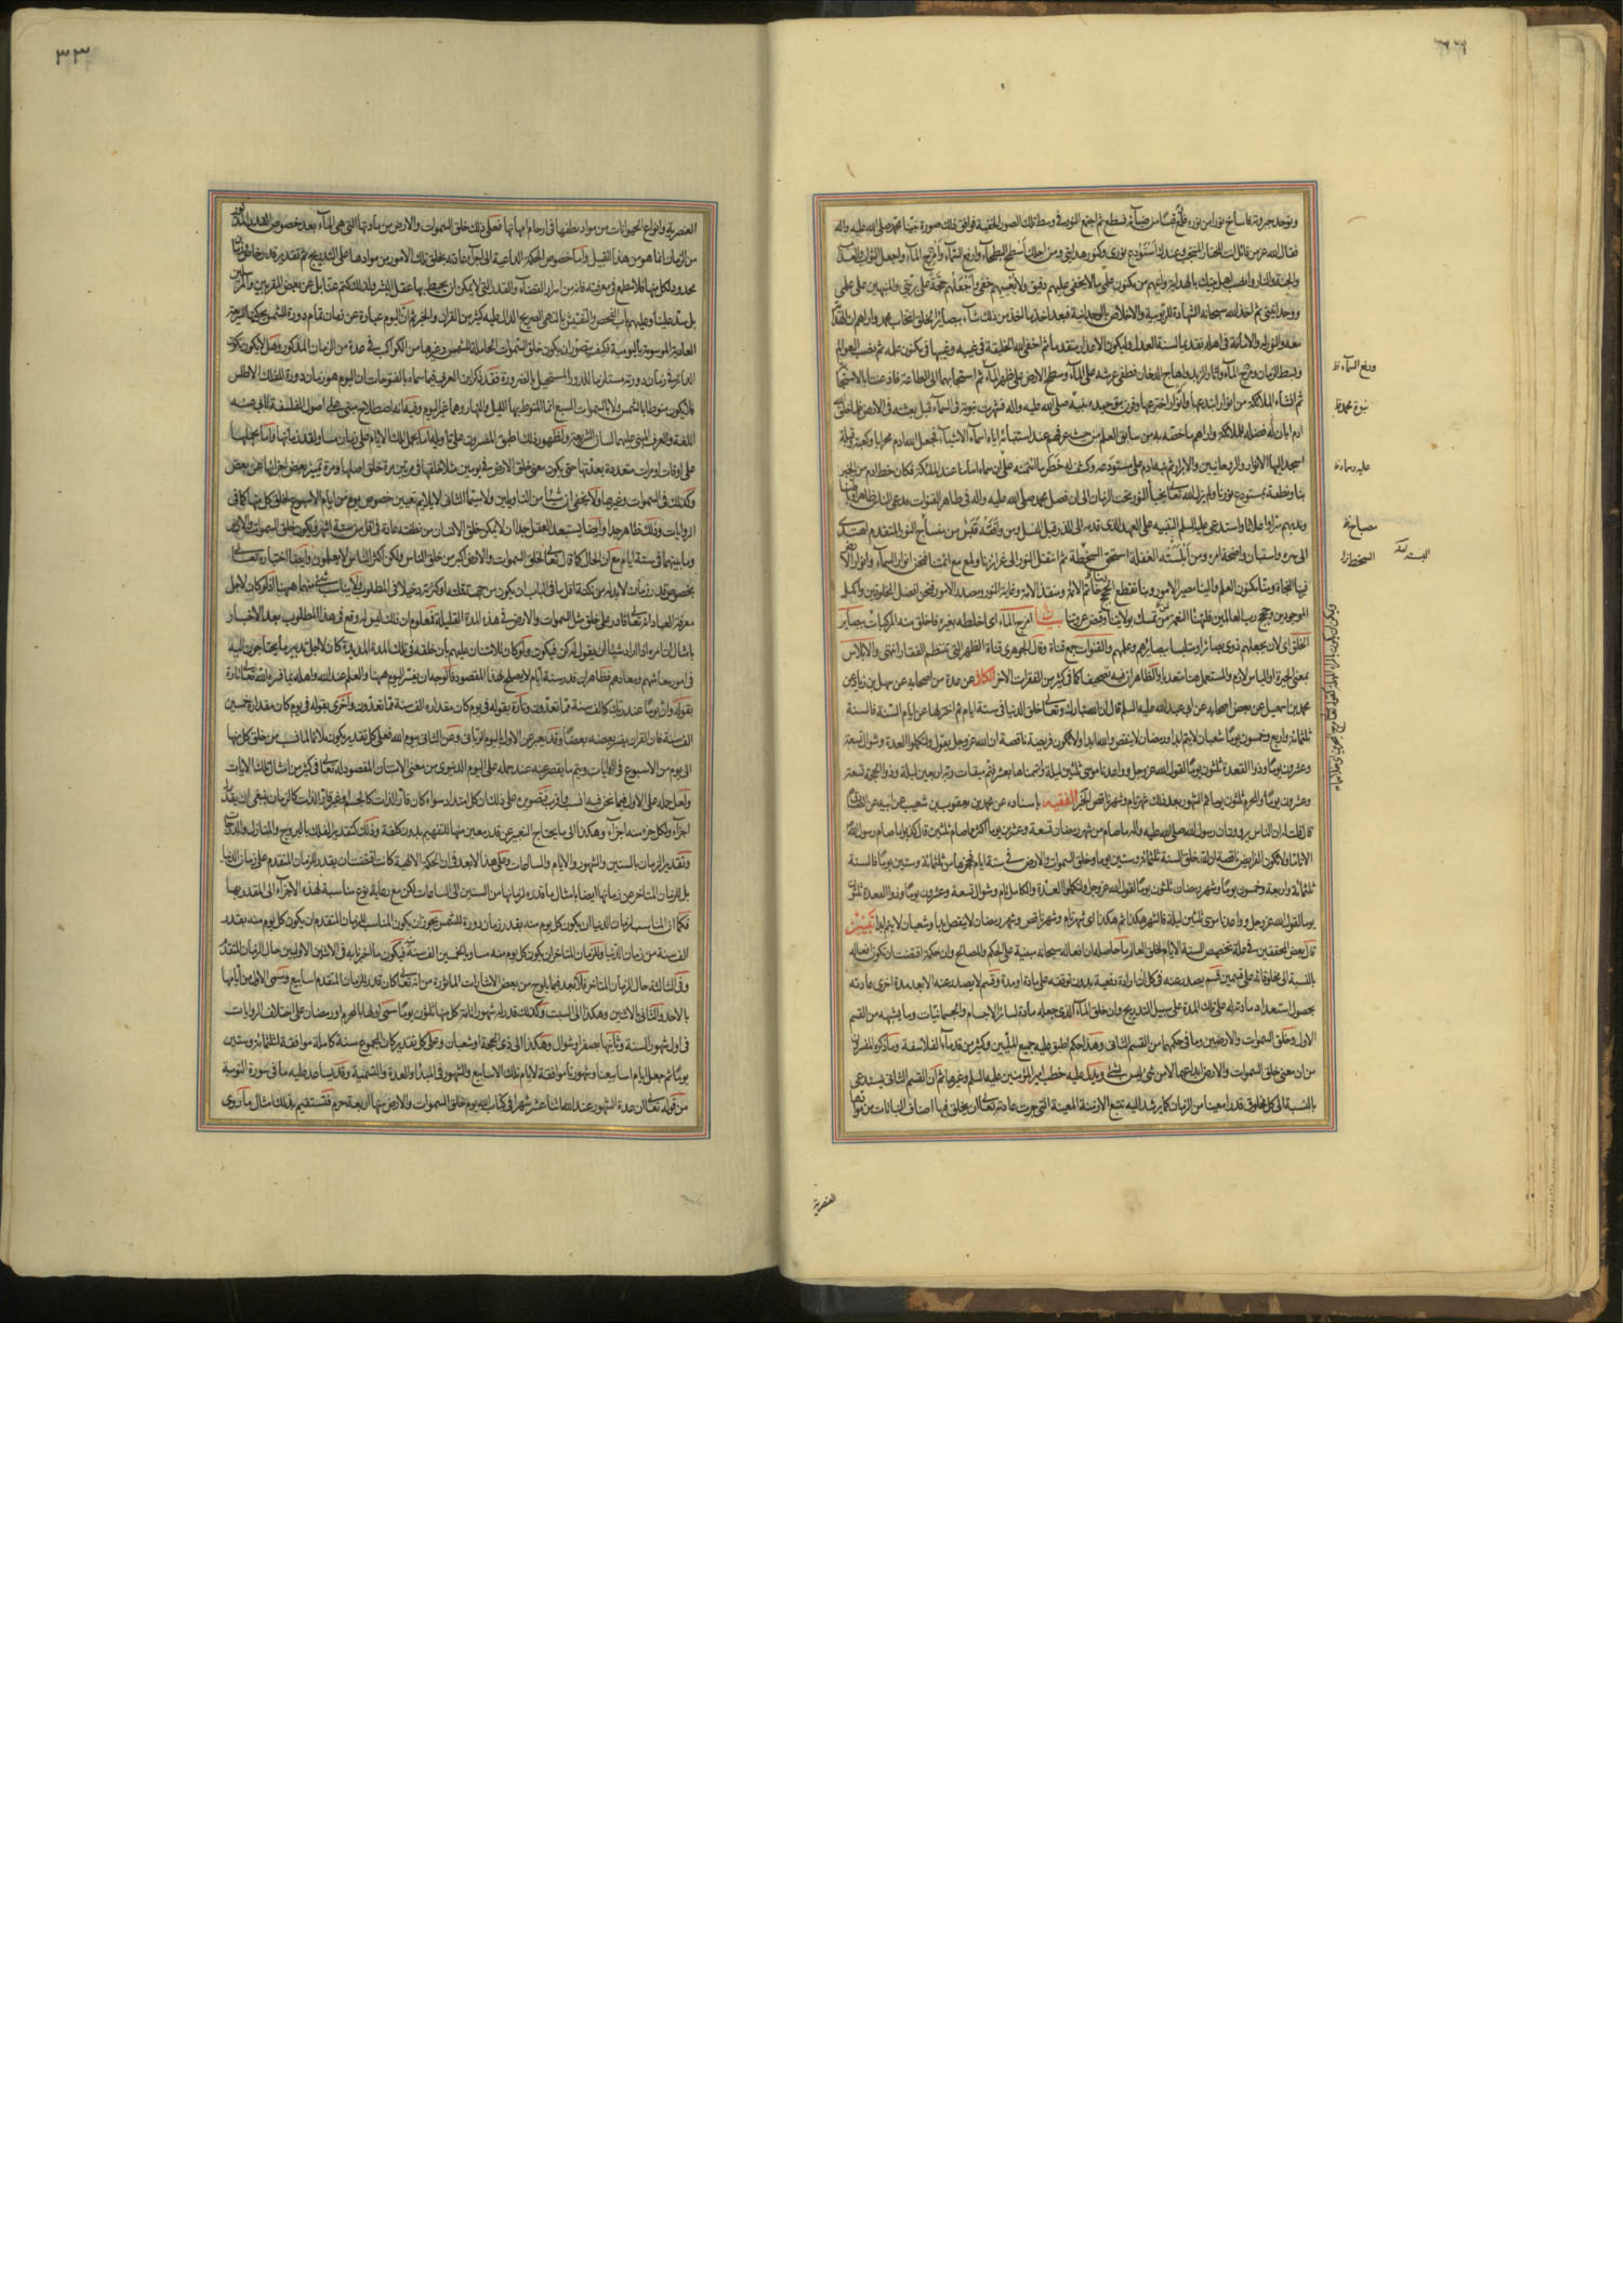 وتوحد جبروته فاساح نورا من نوره فلمع قبسا من ضيائه فسطع ثم اجتمع النور في وسط تلك الصور الخفية فوافق ذلك صورة نبينا محمد صلى الله عليه واله
فقال الله عز من قائل انت المختار المنتجب وعندك استودع نوري وكنوز هدايتي ومن اجلك اسطح البطحاء وارفع السماء وامزج الماء واجعل الثواب والعذاب
والجنة والنار وانصب اهل بيتك بالهداية واوتيهم من مكنون علمي ما لا يخفى عليهم دقيق ولا يغيبهم خفي واجعلهم حجة على بريتي والمنبهين على علمي
ووحدانيتي ثم اخذ الله سبحانه الشهادة للربوبية والاخلاص بالوحدانية فبعد اخذ ما اخذ من ذلك شاء ببصائر الخلق انتخاب محمد واراهم ان الهداية
معه والنور له والامامة في اهله تقديما لسنة العدل وليكون الاعذار متقدما ثم اخفى الله الخليقة في غيبه وغيبها في مكنون علمه ثم نصب العوالم
وبسط الزمان ومرج الماء واثار الزبد واهاج الدخان فطفى عرشه على الماء وسطح الارض على ظهر الماء ثم استجابهما الى الطاعة فاذعنتا بالاستجابة
ثم انشاء الملائكة من انوار ابتدعها وانوار اخترعها وقرن بتوحيده نبوة نبيه صلى الله عليه واله فشهرت نبوته في السماء قبل بعثته في الارض فلما خلق
ادم ابان له فضله للملائكة واراهم ما خصه به من سابق العلم من حيث عرفهم عند استنبائه اياه اسماء الاشياء فجعل الله ادم محرابا وكعبة وقبلة
اسجد اليها الانوار والروحانيين والابرار ثم نبه ادم على مستودعه وكشف له خطر ما ائتمنه على ان سماه اماما عند الملائكة فكان حظ ادم من الخير
بنا ونطقه بمستودع نورنا ولم يزل الله تعالى يخبأ النور تحت الزمان الى ان فصل محمد صلى الله عليه واله في طاهر القنوات فدعى الناس ظاهرا وباطنا
وندبهم سرا واعلانا واستدعى عليه السلم التنبيه على العهد الذي قدمه الى الذر قبل النسل ومن وافقه قبس من مصباح النور المتقدم اهتدى
الى سره واستبان واضح امره ومن ابلسته الغفلة استحق السخطة ثم انتقل النور الى غرائزنا ولمع مع ائمتنا فنحن انوار السماء وانوار الارض
فبنا النجاة ومنا مكنون العلم والينا مصير الامور وبنا تقطع الحجج خاتم الائمة ومنقذ الامة وغاية النور ومصدر الامور فنحن افضل المخلوقين واكمل
الموجودين وحجج رب العالمين فليهنأ النعم من تمسك بولايتنا وقبض عروتنا بيان امزج الماء اي اخلطه بغيره فاخلق منه المركبات ببصائر
الخلق اي لان يجعلهم ذوي بصائر او متلبسا ببصائرهم وعلمهم والقنوات جمع قناة وقال الجوهري قناة الظهر التي تنتظم الفقار انتهى والابلاس
بمعنى الحيرة او الياس لازم والمستعمل هنا متعد والظاهر ان فيه تصحيفا كما في كثير من الفقرات الاخر الكافي عن عدة من اصحابه عن سهل بن زياد عن
محمد بن اسمعيل عن بعض اصحابه عن ابي عبد الله عليه السلم قال ان الله تبارك وتعالى خلق الدنيا في ستة ايام ثم اختزلها عن ايام السنة فالسنة
ثلثمائة واربع وخمسون يوما شعبان لا يتم ابدا ورمضان لا ينقص والله ابدا ولا تكون فريضة ناقصة ان الله عز وجل يقول ولتكملوا العدة وشوال تسعة
وعشرون يوما وذو القعدة ثلثون يوما لقول الله عز وجل وواعدنا موسى ثلثين ليلة واتممناها بعشر فتم ميقات ربه اربعين ليلة وذو الحجة تسعة
وعشرون يوما والمحرم ثلثون يوما ثم الشهور بعد ذلك شهر تام وشهر ناقص الخبر الفقيه باسناده عن محمد بن يعقوب بن شعيب عن ابيه عن الصادق
قال قلت له ان الناس يروون ان رسول الله صلى الله عليه واله ما صام من شهر رمضان تسعة وعشرين يوما اكثر مما صام ثلثين قال كذبوا ما صام رسول الله
الا تاما ولا تكون الفرائض ناقصة ان الله خلق السنة ثلثمائة وستين يوما وخلق السموات والارض في ستة ايام فحجزها من ثلثمائة وستين يوما فالسنة
ثلثمائة واربعة وخمسون يوما وشهر رمضان ثلثون يوما لقول الله عز وجل ولتكملوا العدة والكامل تام وشوال تسعة وعشرون يوما وذو القعدة ثلثون
يوما لقول الله عز وجل وواعدنا موسى ثلثين ليلة فالشهر هكذا ثم هكذا اي شهر تام وشهر ناقص وشهر رمضان لا ينقص ابدا وشعبان لا يتم ابدا تبيين
قال بعض المحققين في علة تخصيص الستة الايام بخلق العالم ما حاصله ان افعاله سبحانه مبنية على الحكم والمصالح وان حكمته اقتضت ان تكون افعاله
بالنسبة الى مخلوقاته على قسمين قسم يصدر عنه في كل ان ارادة دفعية بدون توقفه على مادة او مدة وقسم لا يصدر عنه الا بعد مدة اخرى عادته
بحصول استعداد مادته له على تلك المدة على سبيل التدريج وان خلق الماء الذي جعله مادة لسائر الاجسام والجسمانيات وما يشبهه من القسم
الاول وخلق السموات والارضين وما في حكمهما من القسم الثاني وهذا حكم اطبق عليه جميع المليين وكثير من قدماء الفلاسفة وما ذكره المفسرون
من ان معنى خلق السموات والارض ابداعهما لا من شيء ليس بشيء ويدل عليه خطب امير المؤمنين عليه السلم وغيرها ثم ان القسم الثاني يستدعي
بالنسبة الى كل مخلوق قدرا معينا من الزمان كما يرشد اليه تتبع الازمنة المعينة التي جرت عادته تعالى ان يخلق فيها اصناف النباتات من موادها
العنصرية
ورفع السماء ظ
نبوة محمد ظ
عليه وسماه ظ
مصباح ظ
السخط ظ
العنصرية وانواع الحيوانات من مواد نطفها في ارحام امهاتها فعلى ذلك خلق السموات والارض من مادتها التي هي الماء بعد خصوص القدر المذكور
من الزمان انما هو من هذا القبيل واما خصوص الحكمة الداعية الى اجراء عادته بخلق تلك الامور من موادها على التدريج ثم تقدير قدر خاص وزمان
محدود لكل منها فلا مطمع في معرفته فانه من اسرار القضاء والقدر التي لا يمكن ان يحيط بها عقل البشر ولذلك كتم عنا بل عن بعض المقربين والمرسلين
بل سد علينا وعليهم باب الفحص والتفتيش بالنهي الصريح الدال عليه كثير من القران والخبر ثم ان اليوم عبارة عن زمان تمام دورة للشمس بحركتها السريعة
العادية الموسومة باليومية فكيف يتصور ان يكون خلق السموات الحاملة للشمس وغيرها من الكواكب في عدة من الزمان المذكور وهل لا يكون تكون
الدائر في زمان دورته مستلزما للدور المستحيل بالضرورة فقد ذكر ابن العربي فيما سماه بالفتوحات ان اليوم هو زمان دورة للفلك الاطلس
فلا يكون منوطا بالشمس ولا بالسموات السبع انما المنوط بها الليل والنهار وهما غير اليوم وفيه انه اصطلاح مبني على اصول الفلسفة تأبى عنه
اللغة والعرف المبني عليهما لسان الشريعة ولظهور ذلك اطبق المفسرون على تاويله اما بحمل تلك الايام على زمان مساو لقدر زمانها واما بحملها
على اوقات او مرات متعددة بعدتها حتى يكون معنى خلق الارض في يومين مثلا خلقها في مرتين مرة خلق اصلها ومرة تمييز بعض اجزائها عن بعض
وكذلك في السموات وغيرها ولا يخفى ان شيئا من التاويلين ولا سيما الثاني لا يلائم تعيين خصوص يوم من ايام الاسبوع لخلق كل منها كما في
الروايات وذلك ظاهر جدا وايضا يستبعد العقل جدا ان لا يمكن خلق الانسان من نطفته عادة في اقل من ستة اشهر ويكون خلق السموات والارض
وما بينهما في ستة ايام مع ان الحال كما قال تعالى لخلق السموات والارض اكبر من خلق الناس ولكن اكثر الناس لا يعلمون وايضا اخباره تعالى
بخصوص قدر زمان لا بد له من نكتة اقل ما في الباب ان يكون من جهة قلته او كثرته دخيلا في المطلوب ولا يناسب شيء منهما ههنا اذ لو كان لاجل
معرفة العباد انه تعالى قادر على خلق مثل السموات والارض في هذه المدة القليلة فمعلوم ان ذلك ليس له وقع في هذا المطلوب بعد الاخبار
بامثال ان امره اذا اراد شيئا ان يقول له كن فيكون ولو كان للامتنان عليهم بان خلقه في تلك المدة المديدة كان لاجل تدبير ما يحتاجون اليه
في امور معاشهم ومعادهم فظاهر ان قدر ستة ايام لا يصلح لهذا المقصود فالوجه ان يفسر اليوم ههنا والعلم عند الله واهله بما فسره الله تعالى تارة
بقوله وان يوما عند ربك كالف سنة مما تعدون وتارة بقوله في يوم كان مقداره الف سنة مما تعدون واخرى بقوله في يوم كان مقداره خمسين
الف سنة فان القران يفسر بعضه بعضا وقد يعبر عن الاول باليوم الرباني وعن الثاني بيوم الله فعلى كل تقدير يكون ملائما لما نسب من خلق كل منها
الى يوم من الاسبوع في الروايات ويتم ما يقصر عنه عند حمله على اليوم الدنيوي من معنى الامتنان المقصود له تعالى في كثير من امثال تلك الايات
ولعل حمله على الاول فيما نحن فيه انسب واقرب فتصويره على ذلك ان كل امتداد سواء كان قار الذات كالجسم او غير قار الذات كالزمان ينبغي ان يقدر له
اجزاء ولكل جزء منه اجزاء وهكذا الى ما يحتاج التعبير عن قدر معين منها للتفهيم بدون كلفة وذلك كتقدير الفلك بالبروج والمنازل والدرجات
وتقدير الزمان بالسنين والشهور والايام والساعات وعلى هذا لا بعد في ان الحكمة الالهية كانت اقتضت ان يقدر للزمان المتقدم على زمان الدنيا
بل للزمان المتاخر عن زمانها ايضا بامثال ما قدره لزمانها من السنين الى الساعات لكن مع رعاية نوع مناسبة لهذه الاجزاء الى المقدر بها
فكما ان المناسب لزمان الدنيا ان يكون كل يوم منه بقدر زمان دورة للشمس يجوز ان يكون المناسب للزمان المتقدم ان يكون كل يوم منه بقدر
الف سنة من زمان الدنيا وللزمان المتاخر ان يكون كل يوم منه مساويا لخمسين الف سنة فيكون ما اخبرنا به في الايتين الاوليين حال الزمان المتقدم
وفي الثالثة حال الزمان المتاخر فلا بعد فيما يلوح من بعض الاشارات الماثورة من انه تعالى كان قدر للزمان المتقدم اسابيع وسمى الاول من ايامها
بالاحد والثاني بالاثنين وهكذا الى السبت وكذلك قدر له شهورا تامة كل منها ثلثون يوما سمى اولها بالمحرم او رمضان على اختلاف الروايات
في اول شهور السنة وثانيها بصفر او شوال وهكذا الى ذي الحجة او شعبان وعلى كل تقدير كان المجموع سنة كاملة موافقة لثلثمائة وستين
يوما ثم جعل ايام اسابيعنا وشهورنا موافقة لايام تلك الاسابيع والشهور في المبدأ والعدة والتسمية وقد يساعد عليه ما في سورة التوبة
من قوله تعالى ان عدة الشهور عند الله اثنا عشر شهرا في كتاب الله يوم خلق السموات والارض منها اربعة حرم فتستقيم بذلك امثال ما روي